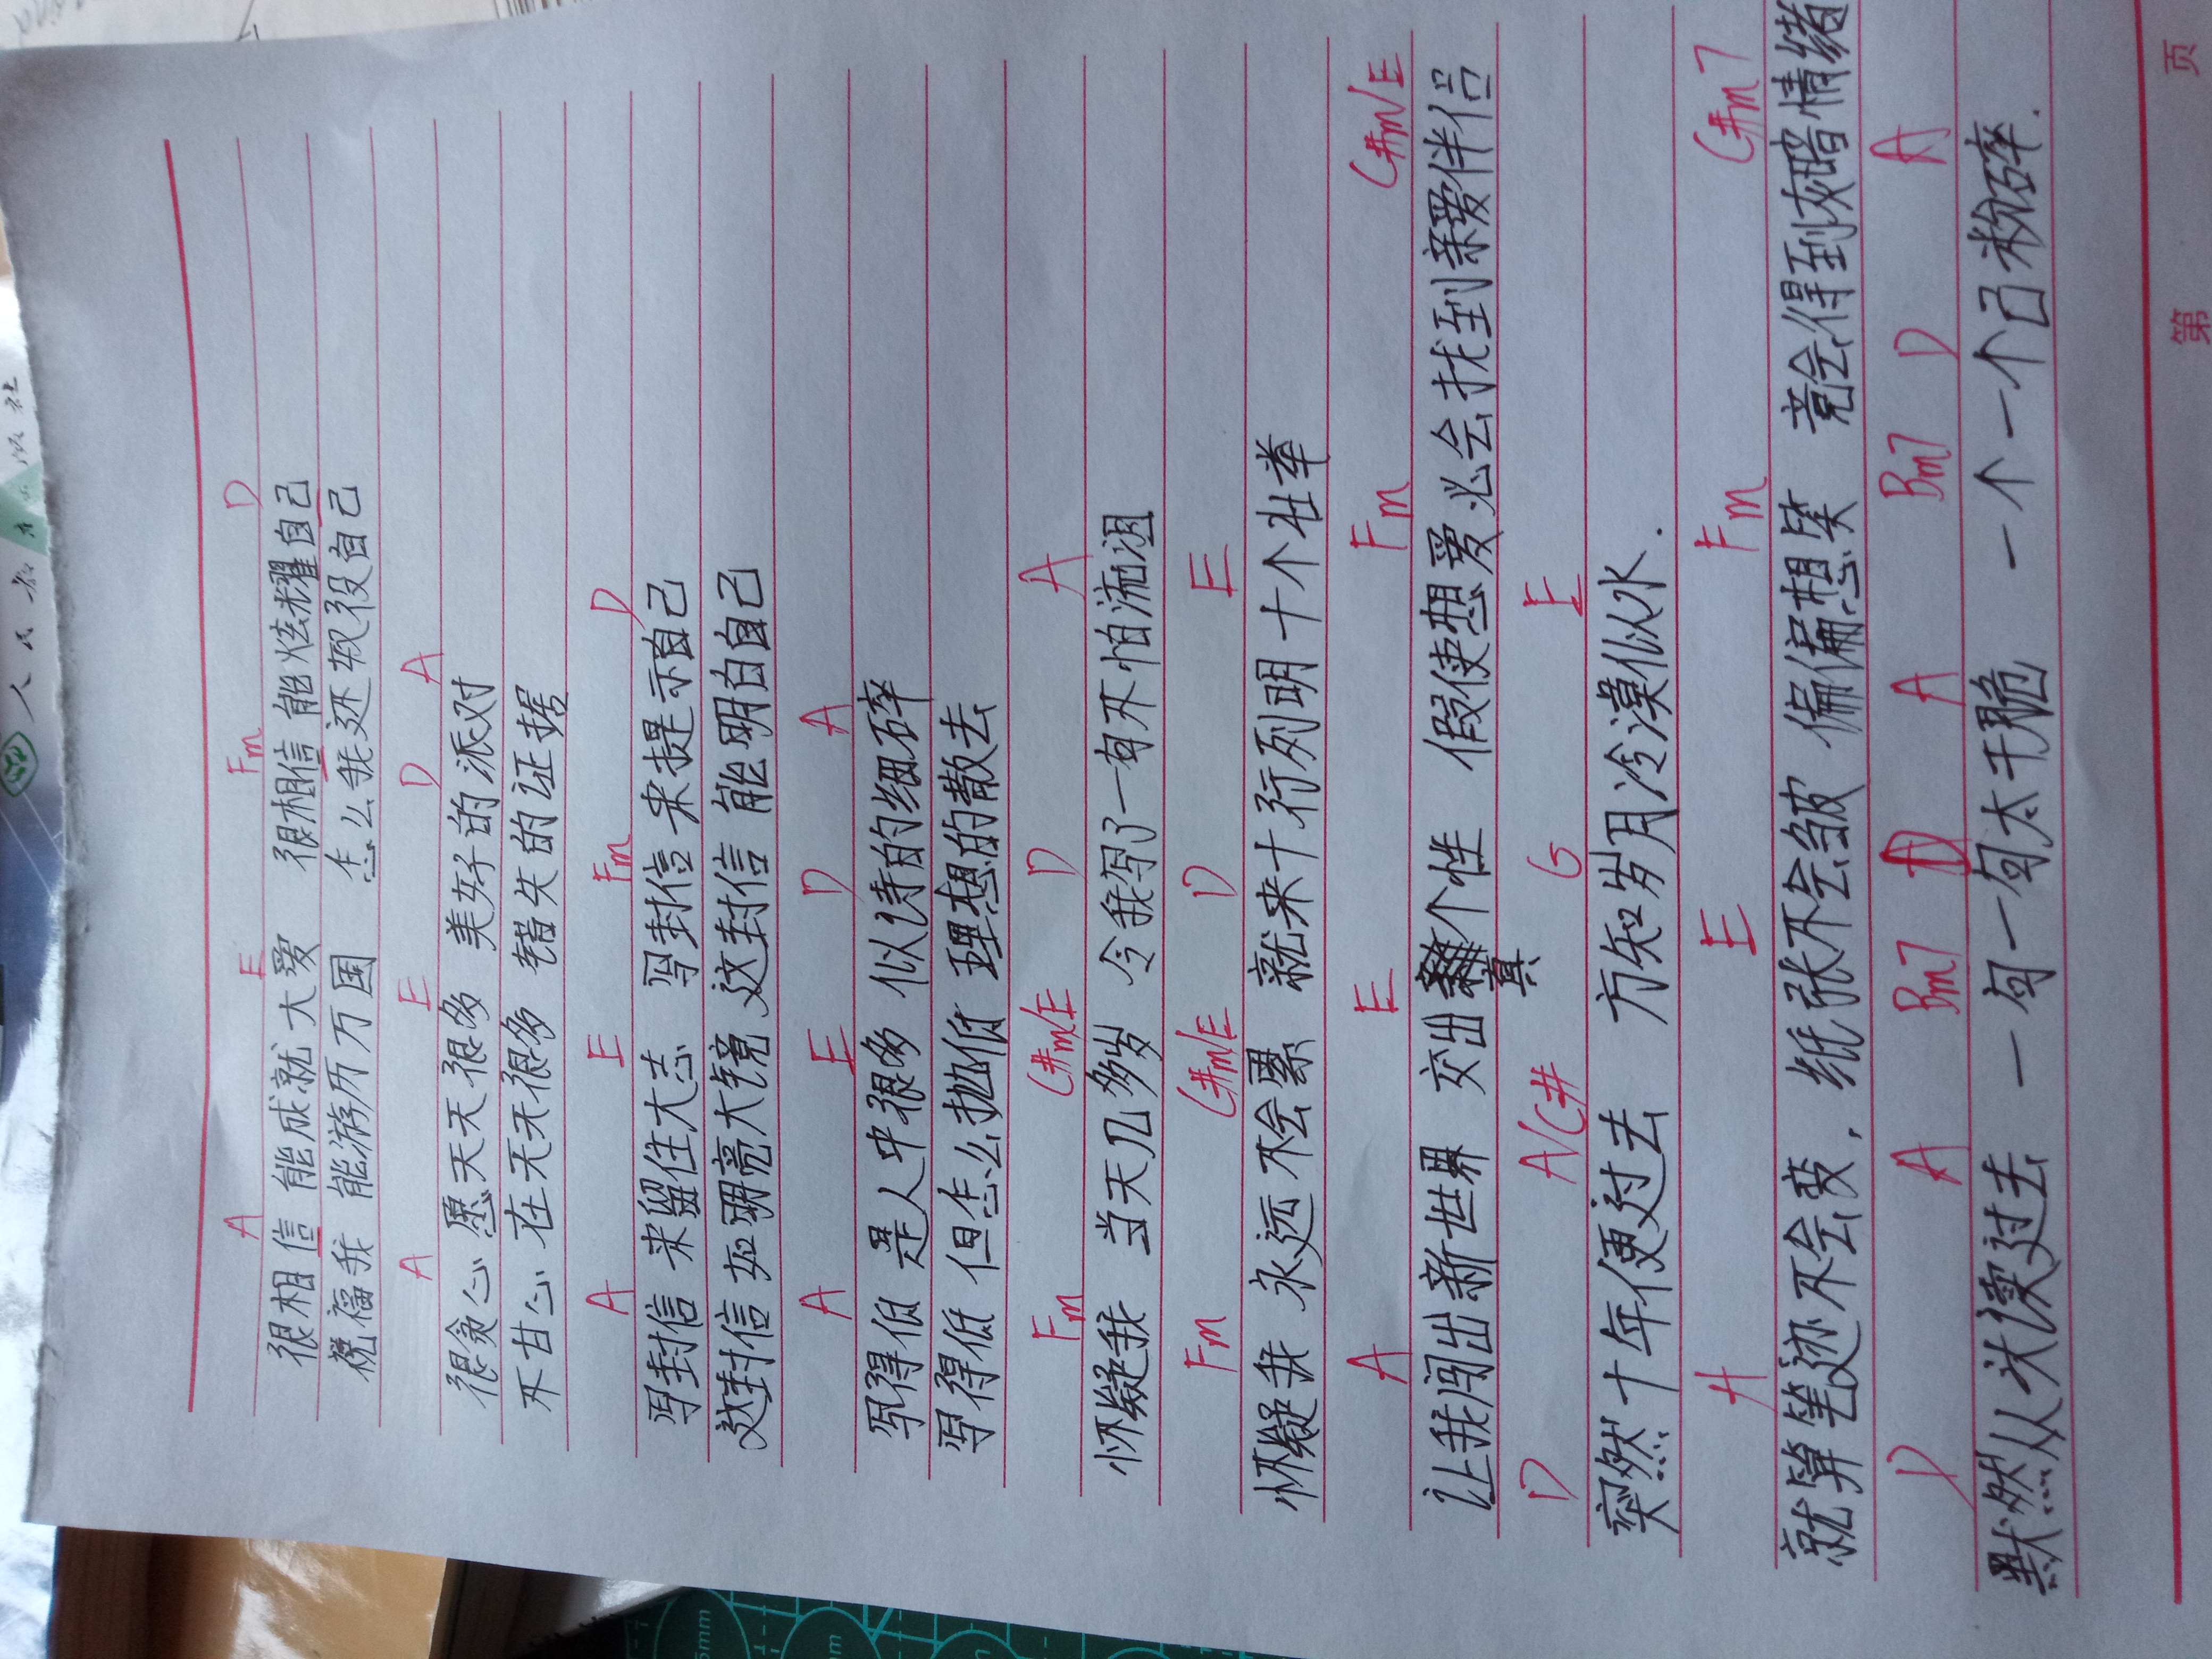 A E Fm D
很相信 能成就大爱 很相信 能炫耀自己
祝福我 能游历万国 怎么我还奴役自己
A E D A
很贪心 愿天天很多 美好的派对
不甘心 在天天很多 错失的证据
A E Fm D
写封信 来留住大志 写封信 来提示自己
这封信 如明亮大镜 这封信 能明白自己
A E D A
写得低 是人中很多 似诗的细碎
写得低 但怎么抛低 理想的散去
Fm C#m/E D A
怀疑我 当天几多岁 令我写了一句不怕流泪
Fm C#m/E D E
怀疑我 永远不会累 就来十行列明十个壮举
A E Fm C#m/E
让我闯出新世界 交出真个性 假使想爱必会找到亲爱伴侣
D A/C# G E
突然十年便过去 方知岁月冷漠似水.
A E Fm C#m7
就算笔迹不会变, 纸张不会皱 偏偏想像 竟会得到灰暗情绪
D A Bm7 D A Bm7 D A
默然从头读过去 一句一句太干脆 一个一个已粉碎.
第 页
人民教育出版社
5mm